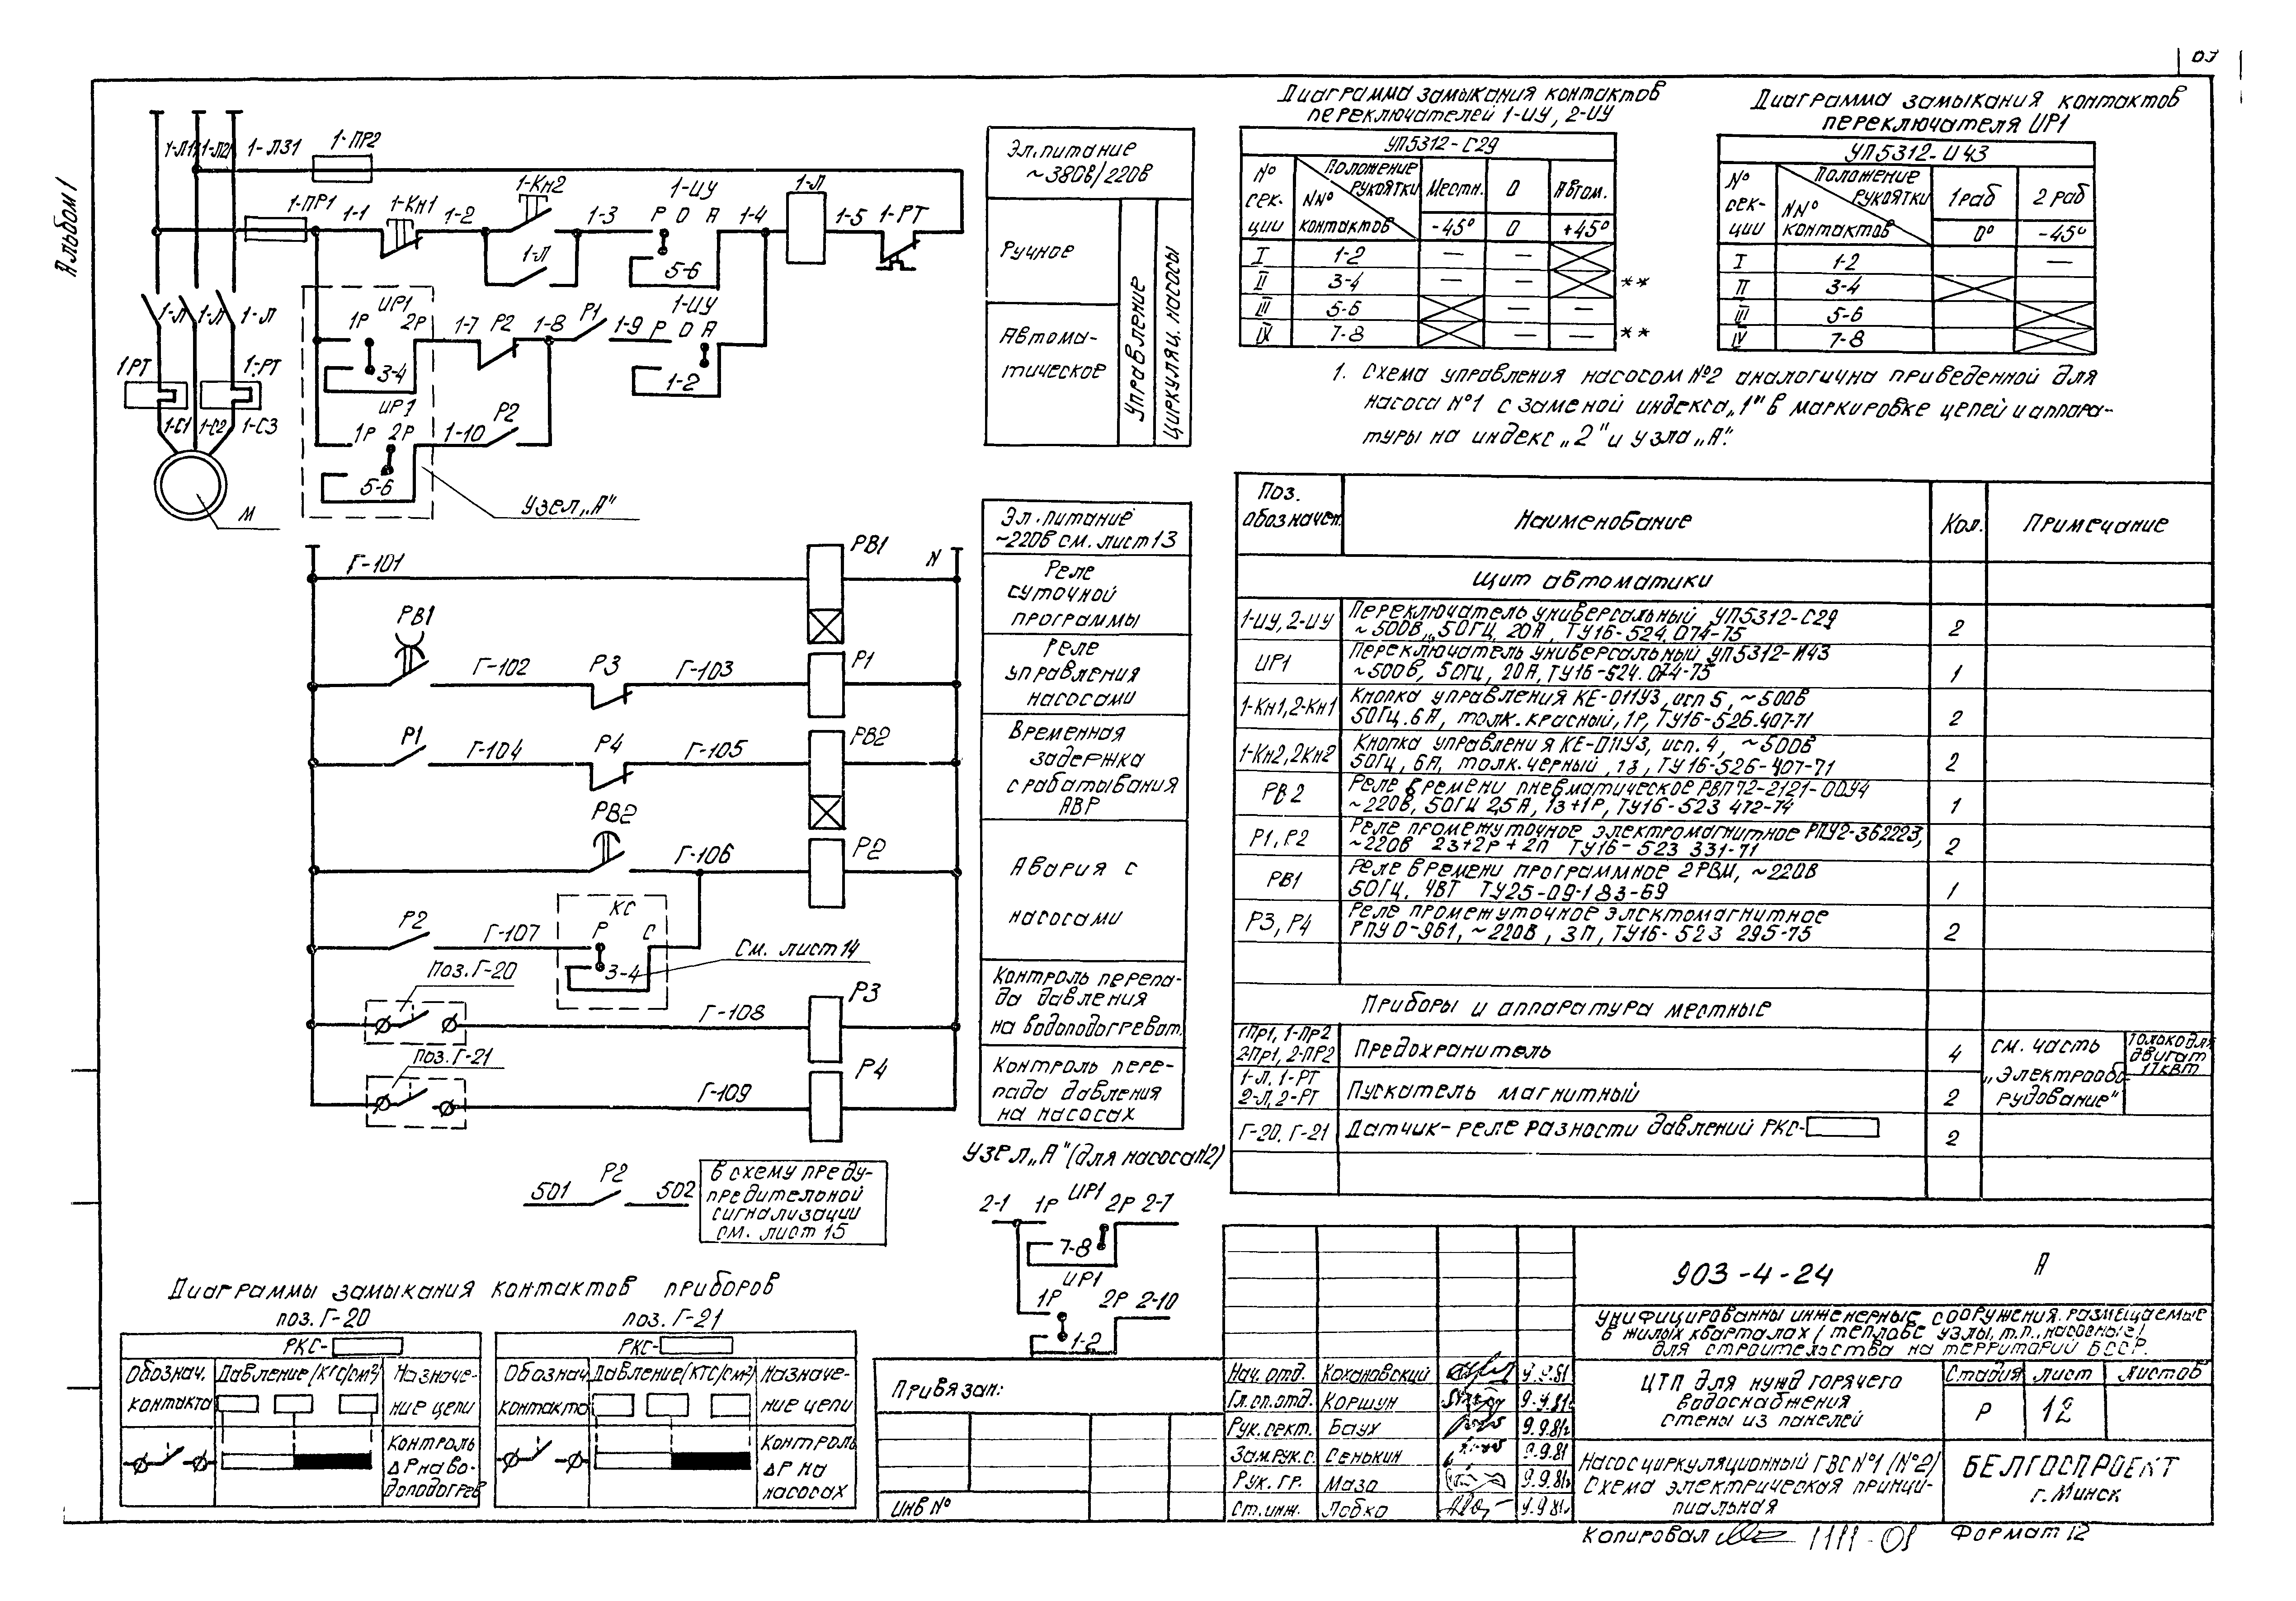 Альбом 1
1-Л1
1-Л2
1-Л31
1-ПР2
1-ПР1
1-1
1-Кн1
1-2
1-Кн2
1-Л
1-3
1-ИУ
Р О А
5-6
1-4
1-Л
1-5
1-РТ
1-Л
1-Л
1-Л
1РТ
1-РТ
1-С1
1-С2
1-С3
М
ИР1
1Р 2Р
3-4
1-7
Р2
1-8
Р1
1-9
1-ИУ
Р О А
1-2
ИР1
1Р 2Р
5-6
1-10
Р2
Узел „А"
Эл.питание
~380В/220В
Ручное
Автома-
тическое
Управление
Циркуляц. насосы
Диаграмма замыкания контактов
переключателей 1-ИУ, 2-ИУ
УП5312-С29
№ сек- ции
Положение рукоятки
NN° контактов
Местн. О Автом.
-45° 0 +45°
I 1-2 — —
II 3-4 — — **
III 5-6 — —
IV 7-8 — — **
Диаграмма замыкания контактов
переключателя ИР1
УП5312-И43
№ сек- ции
Положение рукоятки
NN° контактов
1 раб 2 раб
0° -45°
I 1-2 —
II 3-4
III 5-6
IV 7-8
1. Схема управления насосом №2 аналогична приведенной для
насоса №1 с заменой индекса „1" в маркировке цепей и аппара-
туры на индекс „2" и узла „А".
Г-101
РВ1
N
РВ1
Г-102
Р3
Г-103
Р1
Р1
Г-104
Р4
Г-105
РВ2
РВ2
Г-106
Р2
Р2
Г-107
КС
Р С
3-4
См. лист 14
Поз. Г-20
Г-108
Р3
Поз. Г-21
Г-109
Р4
501
Р2
502
В схему преду-
предительной
сигнализации
см. лист 15
Эл.питание
~220В см. лист 13
Реле
суточной
программы
Реле
управления
насосами
Временная
задержка
срабатывания
АВР
Авария с
насосами
Контроль перепа-
да давления
на водоподогреват.
Контроль пере-
пада давления
на насосах
Узел „А" (для насоса №2)
2-1
1Р
ИР1
2Р
2-7
7-8
ИР1
1Р
2Р
2-10
1-2
Поз. обозначен. Наименование Кол. Примечание
Щит автоматики
1-ИУ, 2-ИУ Переключатель универсальный УП5312-С29
~500В, 50Гц, 20А, ТУ16-524.074-75 2
ИР1 Переключатель универсальный УП5312-И43
~500В, 50Гц, 20А, ТУ16-524.074-75 1
1-Кн1, 2-Кн1 Кнопка управления КЕ-011У3, исп 5, ~500В
50Гц. 6А, толк. красный, 1Р, ТУ16-526.407-71 2
1-Кн2, 2Кн2 Кнопка управления КЕ-011У3, исп. 4, ~500В
50Гц, 6А, толк. черный, 1з, ТУ16-526-407-71 2
РВ2 Реле времени пневматическое РВП72-2121-00У4
~220В, 50Гц 2,5А, 1з+1Р, ТУ16-523 472-74 1
Р1, Р2 Реле промежуточное электромагнитное РПУ2-362223,
~220В 2з+2Р+2П ТУ16-523 331-71 2
РВ1 Реле времени программное 2РВМ, ~220В
50Гц. 4ВТ ТУ25-09-183-69 1
Р3, Р4 Реле промежуточное электомагнитное
РПУ0-961, ~220В, 3П, ТУ16-523 295-75 2
Приборы и аппаратура местные
1Пр1, 1-Пр2
2-Пр1, 2-ПР2 Предохранитель 4
1-Л, 1-РТ
2-Л, 2-РТ Пускатель магнитный 2
см. часть
„Электрообо-
рудование"
только для
двигат
17кВт
Г-20, Г-21 Датчик-реле разности давлений РКС- 2
Диаграммы замыкания контактов приборов
поз. Г-20
РКС-
Обознач. контакта
Давление (кгс/см²)
Назначе-
ние цепи
Контроль
ΔР на во-
доподогрев
поз. Г-21
РКС-
Обознач контакта
Давление (кгс/см²)
Назначе-
ние цепи
Контроль
ΔР на
насосах
Привязан:
Инв №
Нач. отд. Кохановский 9.9.81
Гл.сп.отд. Коршун 9.9.81г
Рук. сект. Баух 9.9.81г
Зам.рук.с. Сенькин 9.9.81
Рук. гр. Мазо 9.9.81г
Ст. инж. Лобко 9.9.81г
903-4-24 А
Унифицированны инженерные сооружения, размещаемые
в жилых кварталах (теплове узлы, т.п., насосные)
для строительства на территорий БССР.
ЦТП для нужд горячего
водоснабжения
стены из панелей
Стадия Лист Листов
Р 12
Насос циркуляционный ГВС №1 (№2)
Схема электрическая принци-
пиальная
БЕЛГОСПРОЕКТ
г. Минск
Копировал
1111-01
Формат 12